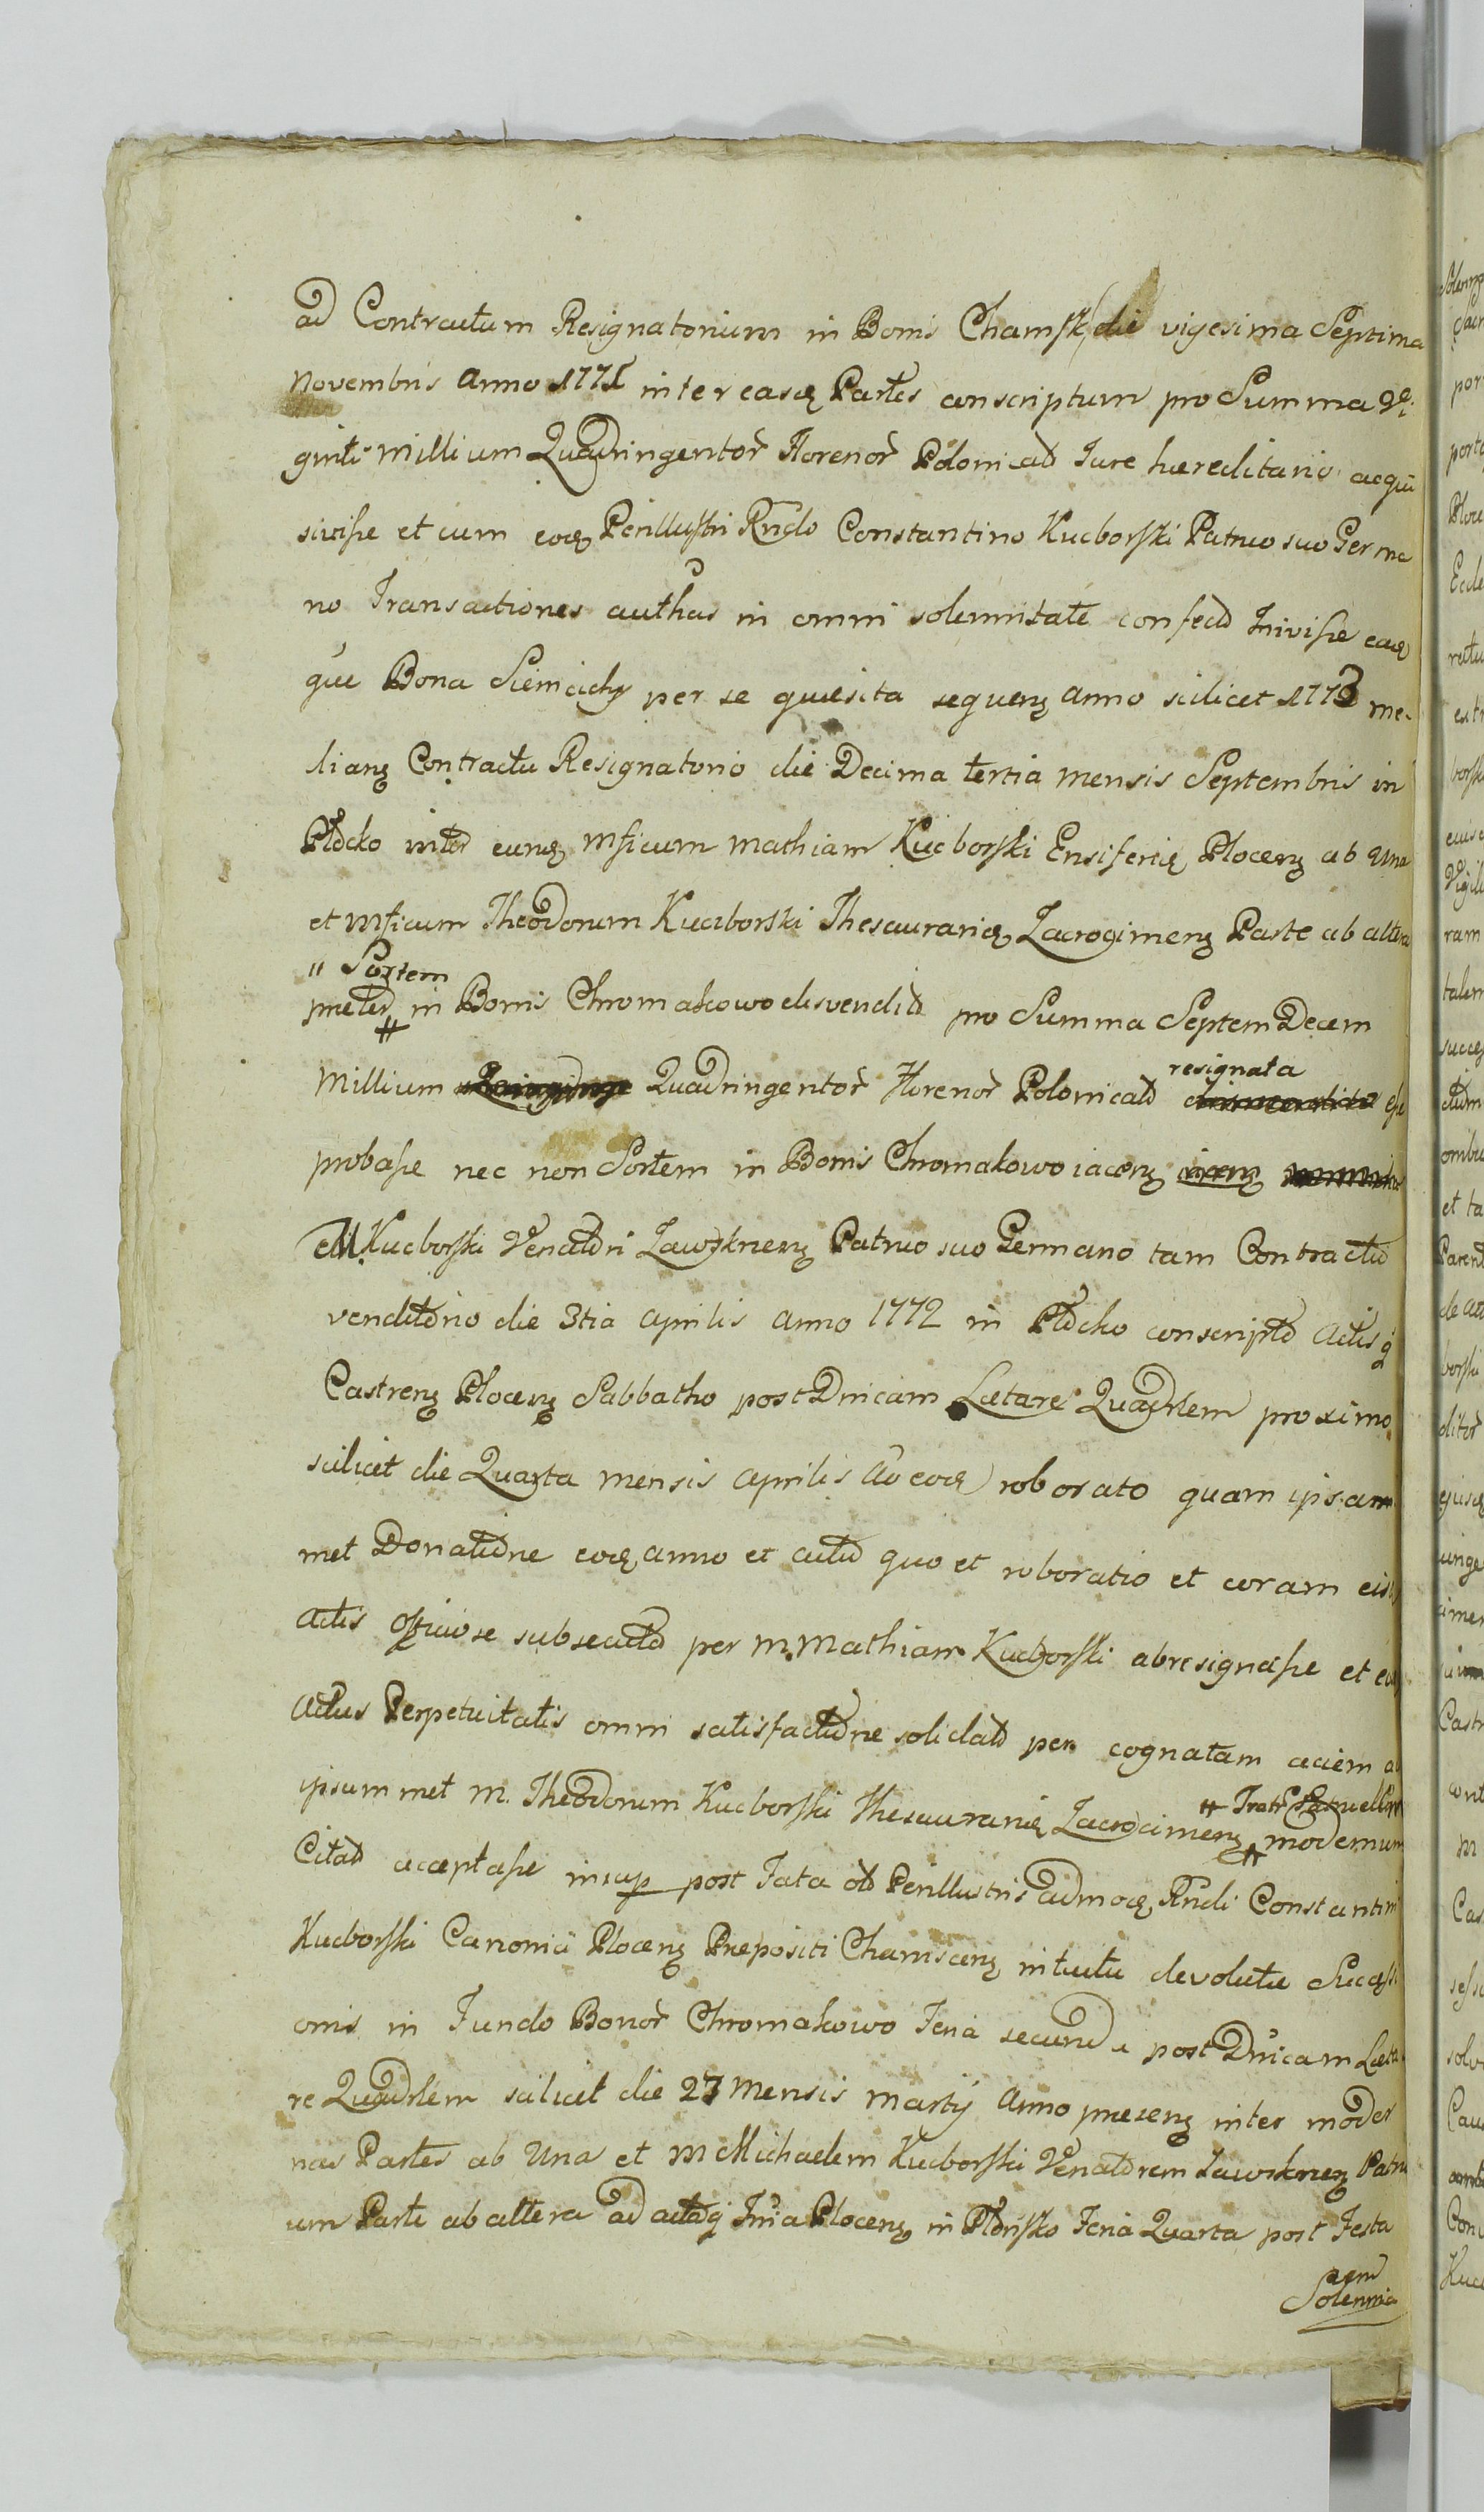 ad Contractum Resignatorium in Bonis Chamsk die vigesima Septima
Novembris Anno 1771 inter easdę Partes conscriptum pro Summa Vi
ginti Millium Quadringentor Florenor Polonicad Jure hæreditario acqui
sivisse et cum eodę Perillustri Rndo Constantino Kucborski Patruo suo Germa
no Transactiones auth̃as in omni solennitate confectd Inivisse eadę
que Bona Siemcichy per se quæsita sequenς Anno scilicet 1773 me
dianς Contractu Resignatorio die Decima tertia mensis Septembris in
Płocko inter eundę Mficum Mathiam Kucborski Ensiferũ Plocenς ab Una
et Mficum Theodorum Kucborski Thesaurariũ Zacrocimenς Parte ab altera
" Sortem
præter # in Bonis Chromakowo disvendid pro Summa Septem Decem
Millium Quadringentor Florenor Polonicald resignata esse
probasse nec non Sortem in Bonis Chromakowo iacenς
M. Kucborski Venatori Zawskrzenς Patruo suo Germano tam Contractu
venditorio die 3tia Aprilis Anno 1772 in Płocko conscripto Actisq
Castrenς Plocenς Sabbatho post Dnicam Lætare Quadrlem proximo
scilicet die Quarta mensis Aprilis Ao eodę roborato quam ipsam
met Donatione eodę anno et actu quo et roboratio et coram eisdę
Actis Officiose subsecuta per M. Mathiam Kucborski abresignasse et
Actus Perpetuitatis omni satisfactione solidatd per cognatam aciem
# Fratrẽ Patruellẽm
ipsummet M. Theodorum Kucborski Thesaurariũ Zacrocimenς # modernum
Citatd acceptasse insup post Fata old Perillustris admodę Rndi Constantini
Kucborski Canonici Plocenς Præpositi Chamscenς intuitu devolutæ Successi
onis in Fundo Bonor Chromakowo Feria secunda post Dnicam Læta
re Quadrlem scilicet die 27 Mensis Martij Anno præsenς inter moder
nas Partes ab Una et M Michaelem Kucborski Venatorem Zawskrzenς Patru
um Parte ab altera ad actaq Plocenς in Płońsko Feria Quarta post Festa
Solennia